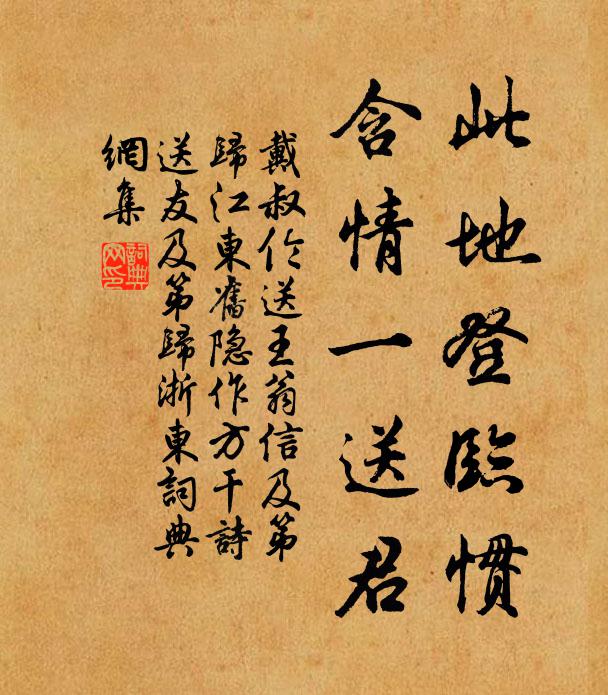 此地登臨慣
含情一送君
戴叔伦送王翁信及第
歸江東舊隐作方干詩
送友及第歸浙東詞典
網集
詞典
网印